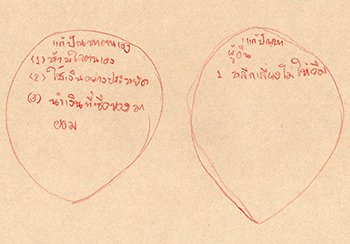 แก้ปัญหาตนเอง
(1) ห้ามใจตนเอง
(2) ใช้เงินอย่างประหยัด
(3) นำเงินที่ซื้อของมา
ออม
แก้ปัญหา
ผู้อื่น
1 หลีกเลี่ยงไม่ให้ยืม